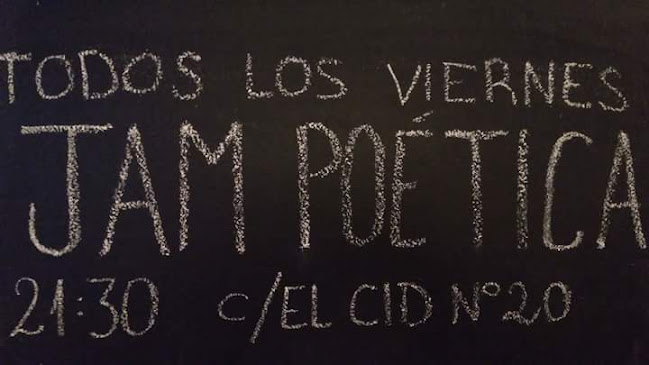 TODOS LOS VIERNES
JAM POÉTICA
21:30 C/EL CID Nº20